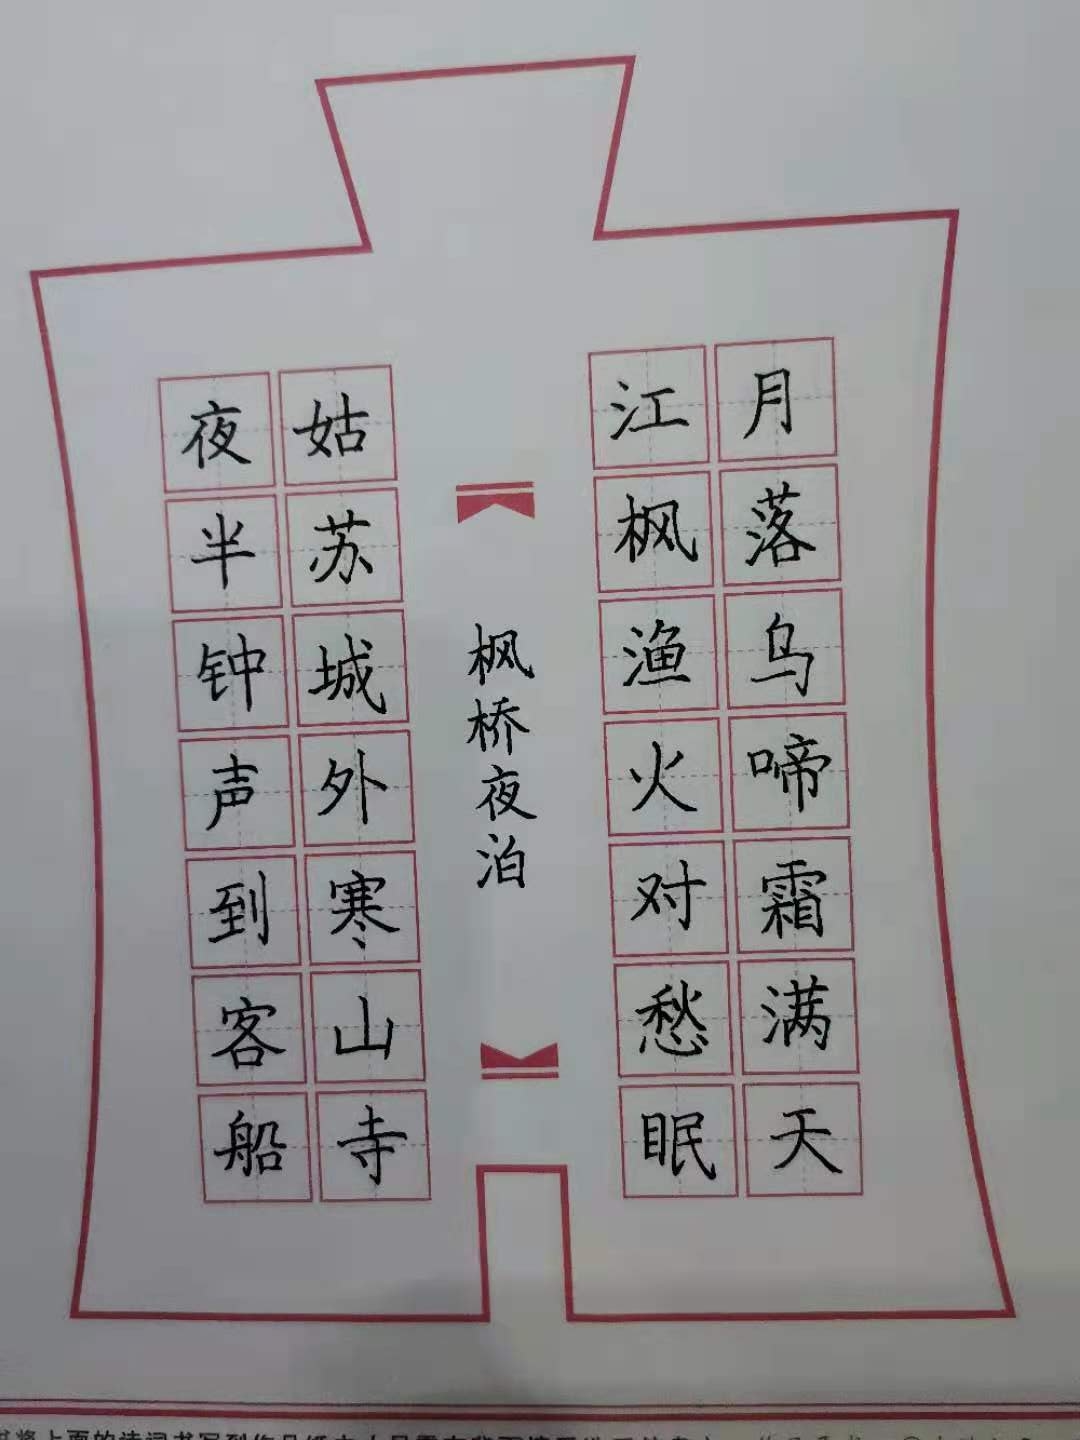 月落乌啼霜满天
江枫渔火对愁眠
枫桥夜泊
姑苏城外寒山寺
夜半钟声到客船
将上面的诗词书写到作品纸